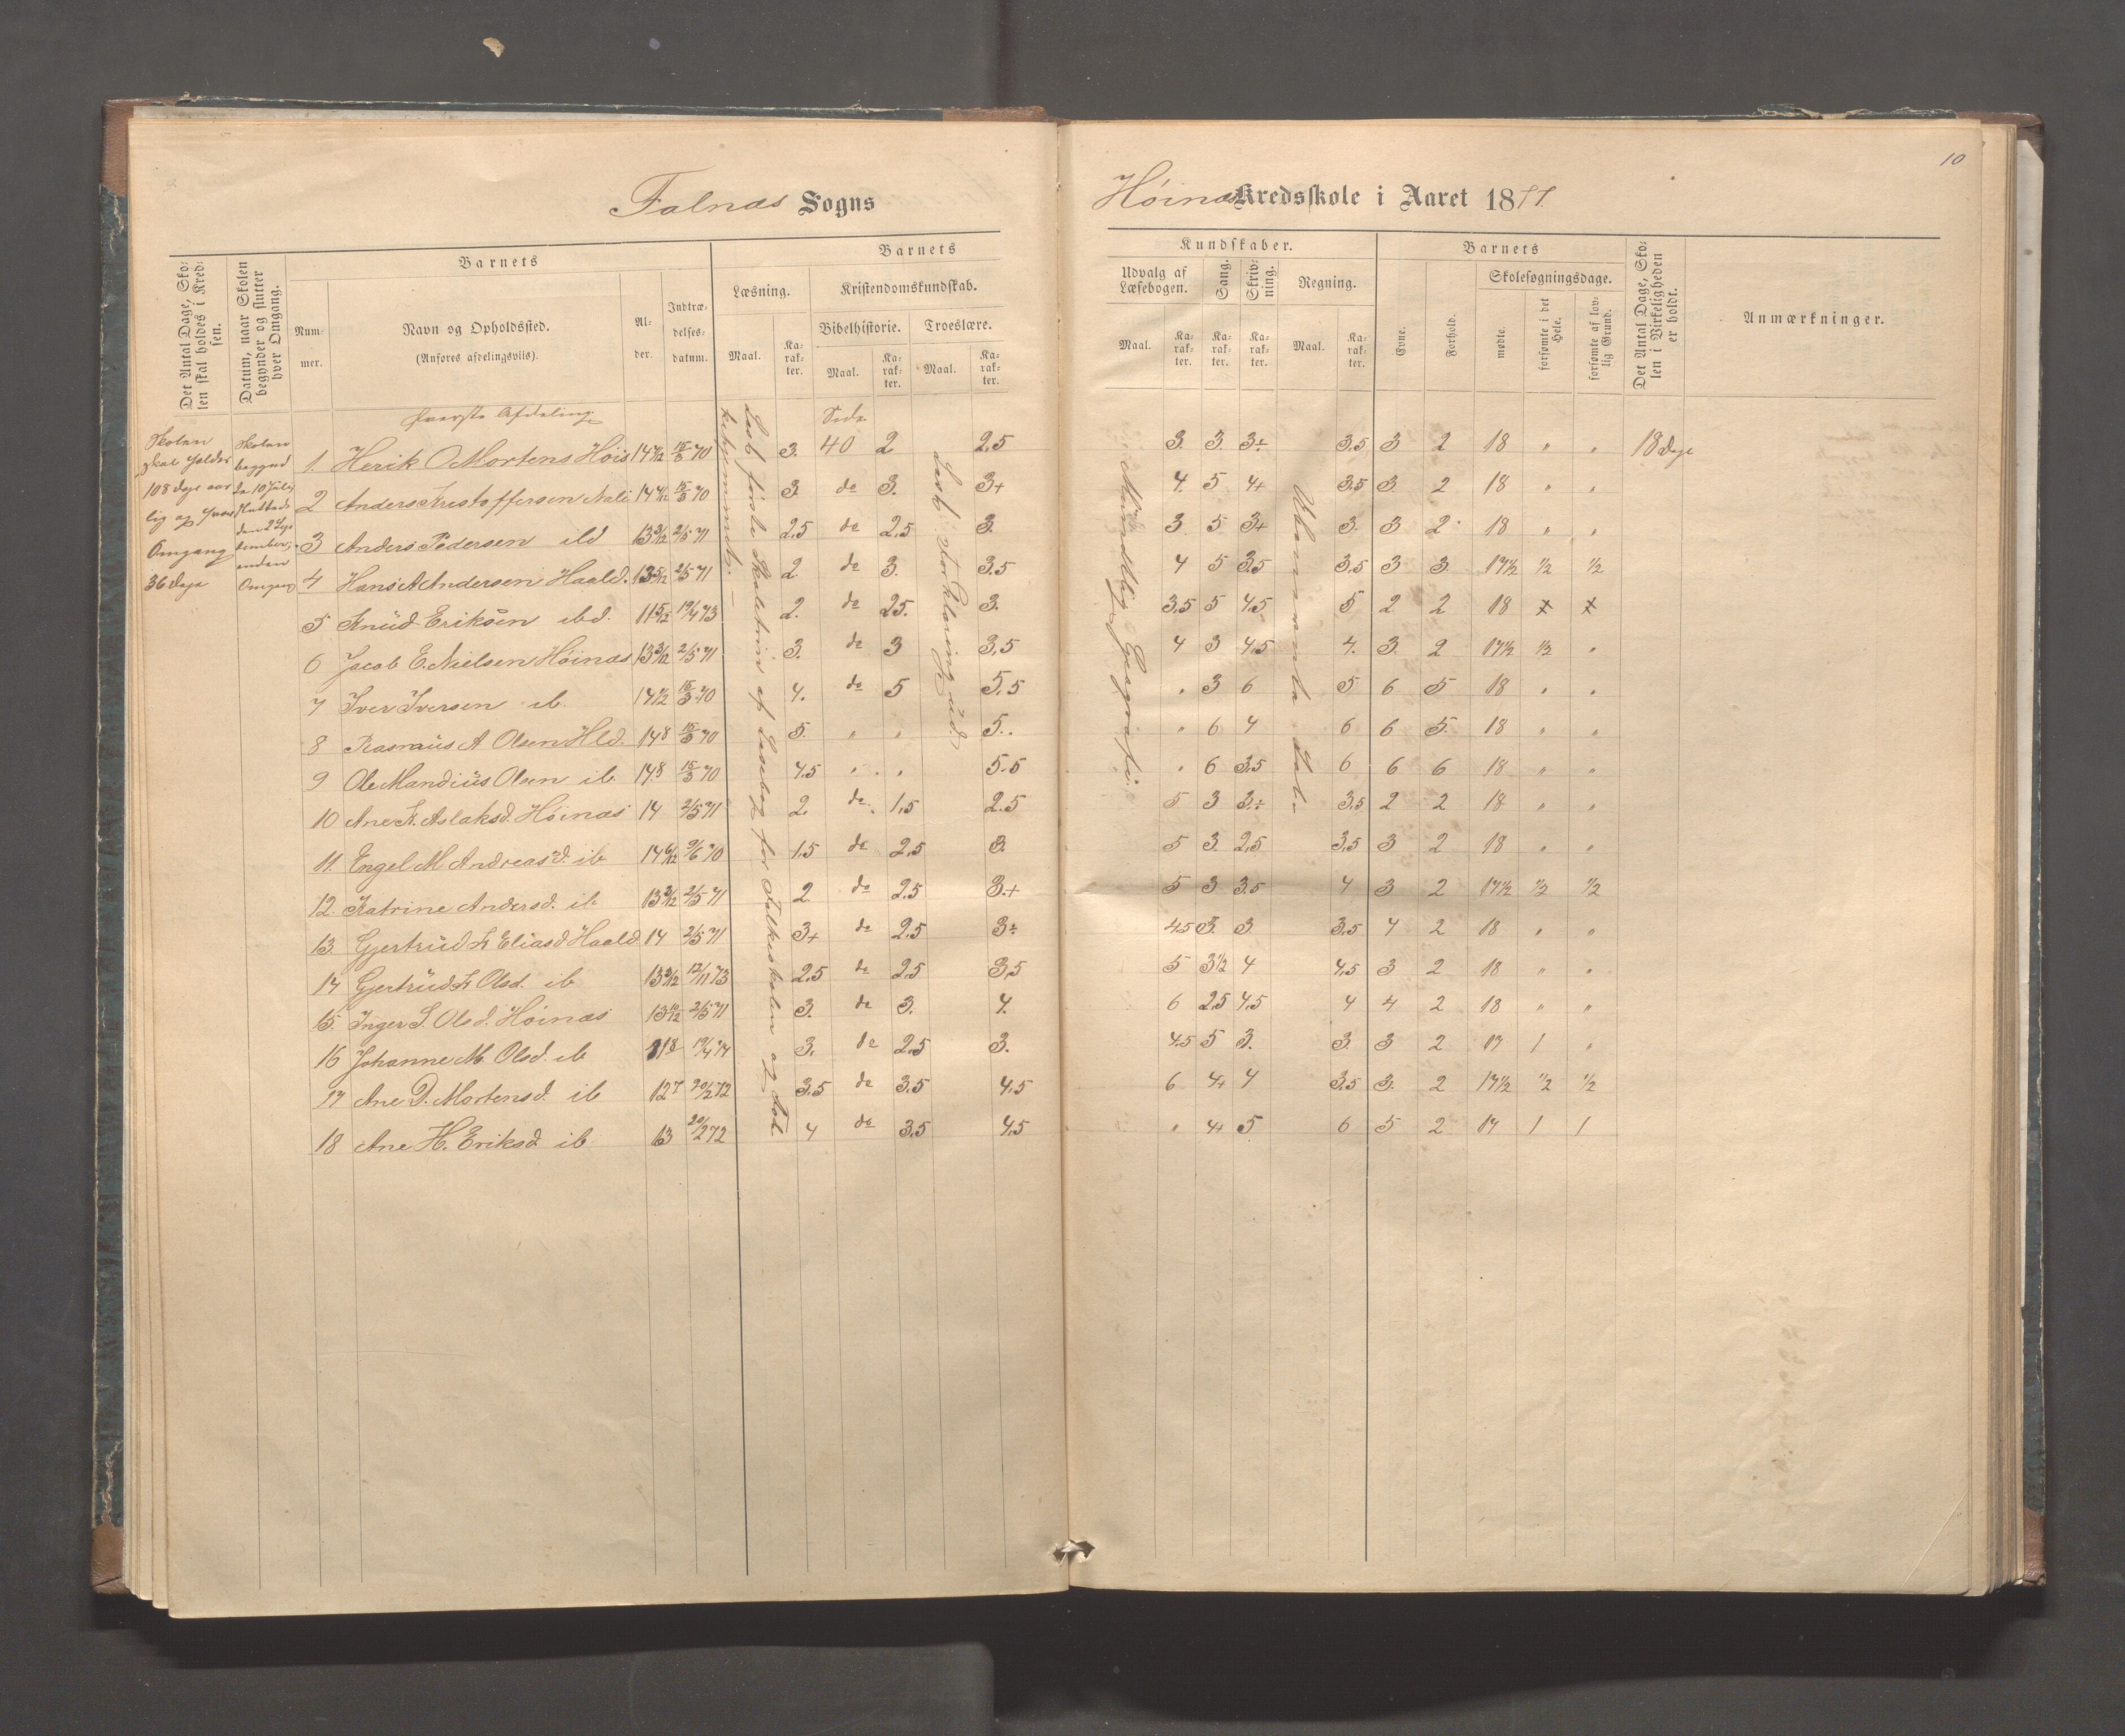 10
Falnæs Sogns
Høinæs Kredsskole i Aaret 1877.
Det Antal Dage, Skolen skal holdes i Kredsen.
Datum, naar Skolen begynder og slutter hver Omgang.
Barnets
Nummer.
Navn og Opholdssted.
(Anføres afdelingsviis).
Alder.
Indtrædelsesdatum.
Barnets
Læsning.
Maal.
Karakter.
Kristendomskundskab.
Bibelhistorie.
Maal.
Karakter.
Troeslære.
Maal.
Karakter.
Kundskaber.
Udvalg af Læsebogen.
Maal.
Karakter.
Sang.
Karakter.
Skrivning.
Karakter.
Regning.
Maal.
Karakter.
Barnets
Evne.
Forhold.
Skolesøgningsdage.
mødte.
forsømte i det Hele.
forsømte af lovlig Grund.
Det Antal Dage, Skolen i Virkeligheden er holdt.
Anmærkninger.
Øverste Afdeling
Side
Skolen skal holdes 108 Dage aarlig og hver Omgang 36 Dage
Skolen begynd 10 Juli den 2 September, anden Omgang
Læst første Skoletrin af Læsebog for Folkeskolen og
Læst Forklaring ud.
Mundtlig Geografi.
1. Herik Mortens Høis 14 4/12 15/3 70 3. 40 2 2,5 3. 3. 3÷ 3,5 3 2 18 " " 18 Dage
2 Anders Kristoffersen 14 4/12 15/3 70 3. do 3. 3+ 4. 5 4+ 3,5 3. 2 18 " "
3 Anders Pedersen ild 13 2/12 2/5 71 2,5 do 2,5 3. 3 5 3+ 3. 3 2 18 " "
4 Hans A Andersen Haald. 13 5/12 2/5 71 2. do 3. 3.5 4 5 3,5 3,5 3 3. 17 1/2 1/2 1/2
5 Knüd Eriksen ibd. 11 5/12 19/4 73 2. do 2.5. 3. 3,5 5 4,5 5 2 2 18
6 Jacob E. Nielsen Høinæs 13 3/12 2/5 71 3. do 3 3,5 4 3 4,5 4. 3. 2 17 1/2 1/2 "
7 Iver Iversen ib. 14 7/12 15/3 70 4. do 5 5,5 " 3 6 5 6 5 18 " "
8 Rasmüs A Olsen Hld. 14 8 15/3 70 5. " " 5.. " 6 4 6 6 5. 18 " "
9 Ole Mandiüs Olsen ib 14.8 15/3 70 4.5 " " 5.5 " 6 3,5 6 6 6 18 " "
10 Ane K. Aslaksd. Høinæs 14 2/5 71 2. do. 1,5 2.5 5 3 3.÷ 3,5 2 2 18 " "
11. Engel M Andreasd. ib 14 6/12 9/6 70 1.5 do 2,5 3. 5 3. 2,5 3,5 3 2 18 " "
12. Katrine Andersd. ib 13 3/12 2/5 71 2. do 2.5 3.+ 5 3 3.5 4 3 2 17 1/2 1/2 1/2
13. Gjertrüd K Eliasd Haald 14 2/5 71 3+ do 2.5 3÷ 4,5 3. 3 3,5 4 2 18 " "
14 Gjertrüd K Olsd. ib 13 3/12 12/11 73 2,5 do 2,5 3,5 5 3 1/2 4 4,5 3 2 18 " "
15. Inger S. Olsd. Høinæs 13 10/12 2/5 71 3. do 3. 4. 6 2,5 4,5 4 4 2 18 " "
16 Johanne M. Olsd. ib 11 8 19/4 74 3. do 2,5 3. 4,5 5 3. 3. 3 2 17 1 "
17 Ane D. Mortensd. ib 12 7 20/2 72 3,5 do 3.5 4,5 6 4+ 4 3,5 3. 2 17 1/2 1/2 1/2
18 Ane H. Eriksd. ib 13 20/2 72 4 do 3,5 4,5 " 4+ 5 6 5 2 17 1 1